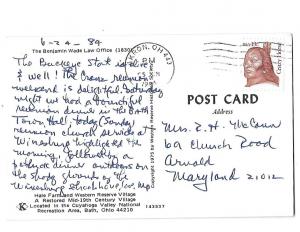 6-24-84
The Benjamin Wade Law Office (1830)
The Buckeye State is alive
& well! The Crane reunion
weekend is delightful. Saturday
night we had a bountiful
reunion dinner in the Bath
Town Hall; today (Sunday)
reunion church service at
Winsburg highlighted the
morning, followed by a
picnic dinner outdoors on
the shady grounds of the
Hale Farm and Western Reserve Village
A Restored Mid-19th Century Village
Located in the Cuyahoga Valley National
Recreation Area, Bath, Ohio 44210
K
143537
AKRON, OH 443
Crazy Horse
POST CARD
Address
Mrs. E.H. McCann
69 Church Road
Arnold
Maryland 21012